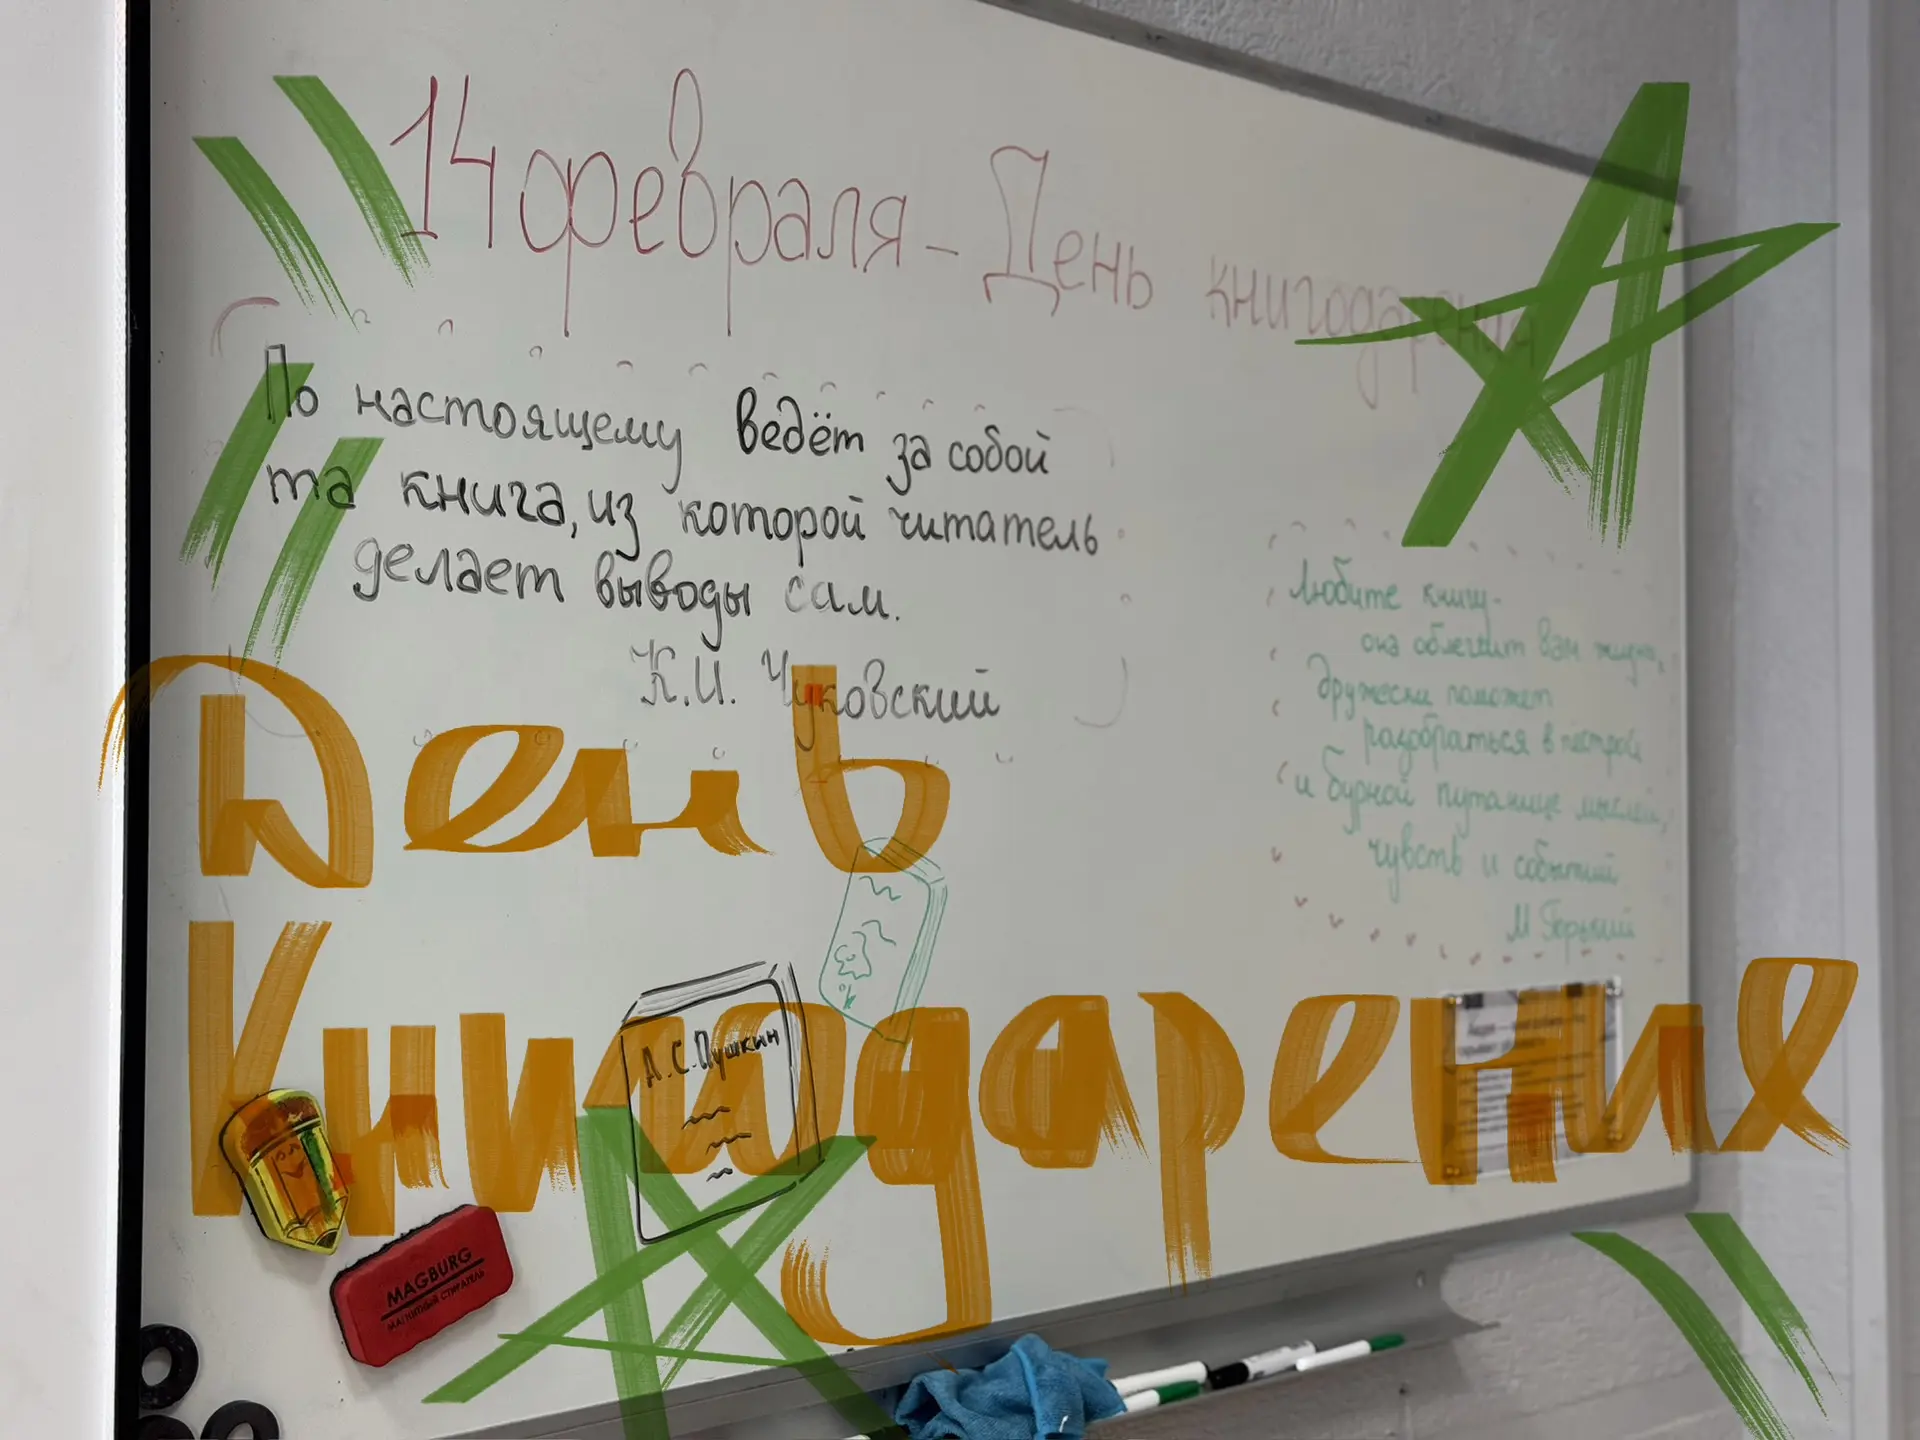 14 февраля - День книгодарения
По настоящему ведёт за собой
та книга, из которой читатель
делает выводы сам.
К.И. Чуковский
Любите книгу -
она облегчит вам жизнь,
дружески поможет
разобраться в пестрой
и бурной путанице мыслей,
чувств и событий
М Горький
День
Книгодарение
А.С. Пушкин
MAGBURG
МАГНИТНЫЙ СТИРАТЕЛЬ